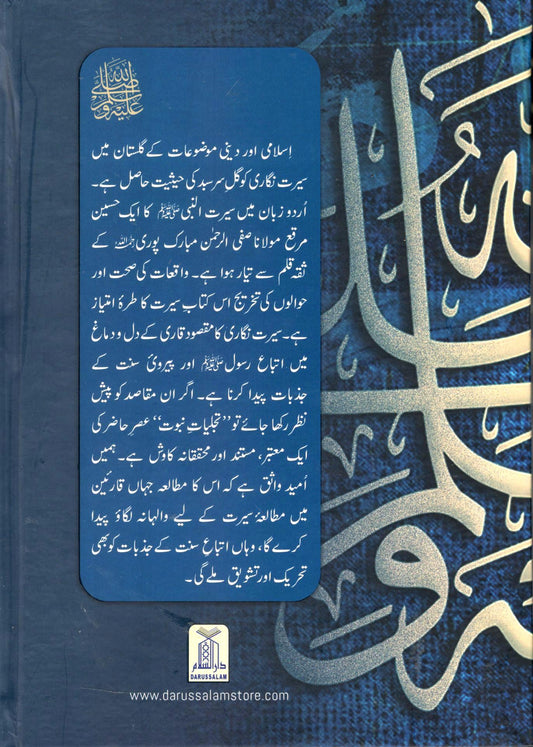 صلى الله عليه وسلم
اِسلامی اور دینی موضوعات کے گلستان میں
سیرت نگاری کو گلِ سرسبد کی حیثیت حاصل ہے۔
اُردو زبان میں سیرت النبی ﷺ کا ایک حسین
مرقع مولانا صفی الرحمٰن مبارک پوری رحمہ اللہ کے
ثقہ قلم سے تیار ہوا ہے۔ واقعات کی صحت اور
حوالوں کی تخریج اس کتابِ سیرت کا طرۂ امتیاز
ہے۔ سیرت نگاری کا مقصود قاری کے دل و دماغ
میں اتباعِ رسول ﷺ اور پیروئ سنت کے
جذبات پیدا کرنا ہے۔ اگر ان مقاصد کو پیش
نظر رکھا جائے تو ’’تجلیاتِ نبوت‘‘ عصرِ حاضر کی
ایک معتبر، مستند اور محققانہ کاوش ہے۔ ہمیں
اُمید واثق ہے کہ اس کا مطالعہ جہاں قارئین
میں مطالعۂ سیرت کے لیے والہانہ لگاؤ پیدا
کرے گا، وہاں اتباعِ سنت کے جذبات کو بھی
تحریک اور تشویق ملے گی۔
دار السلام
DARUSSALAM
www.darussalamstore.com